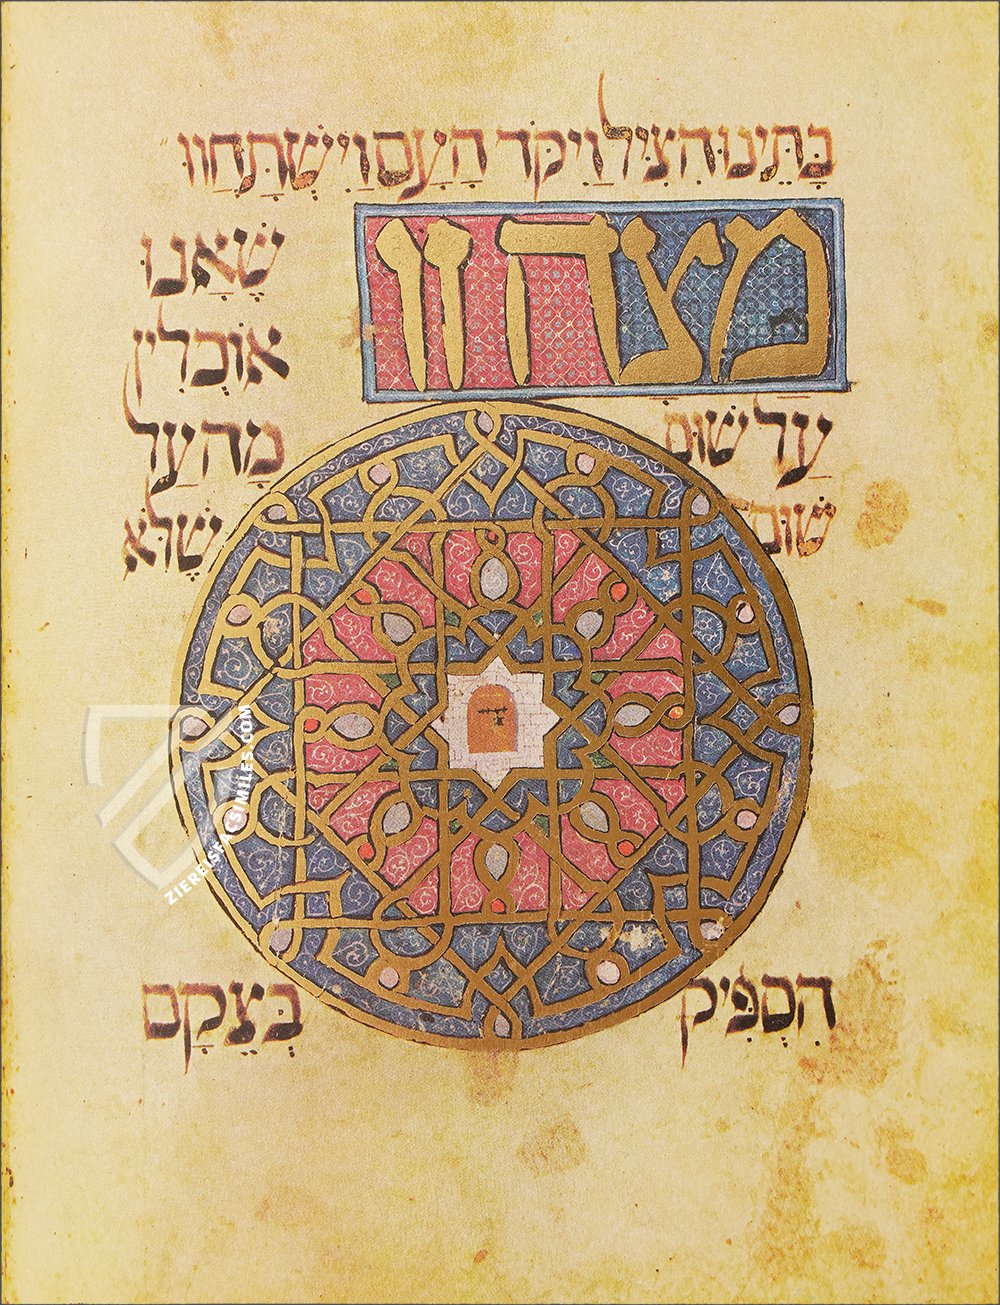 בָּתֵּינוּ הִצִּיל וַיִּקֹּד הָעָם וַיִּשְׁתַּחֲווּ
מצה זו שֶׁאַנוּ
אוֹכְלִין
עַל שׁוּם מַה עַל
שׁוּם שֶׁלֹּא
הִסְפִּיק בְּצֵקָם
ZIEREISFACSIMILES.COM